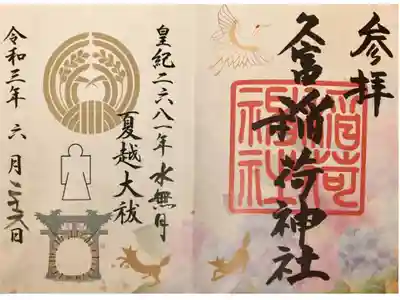 参拝
久富稲荷神社
稲荷
神社
皇紀二六八一年 水無月
夏越大祓
令和三年 六月二十六日